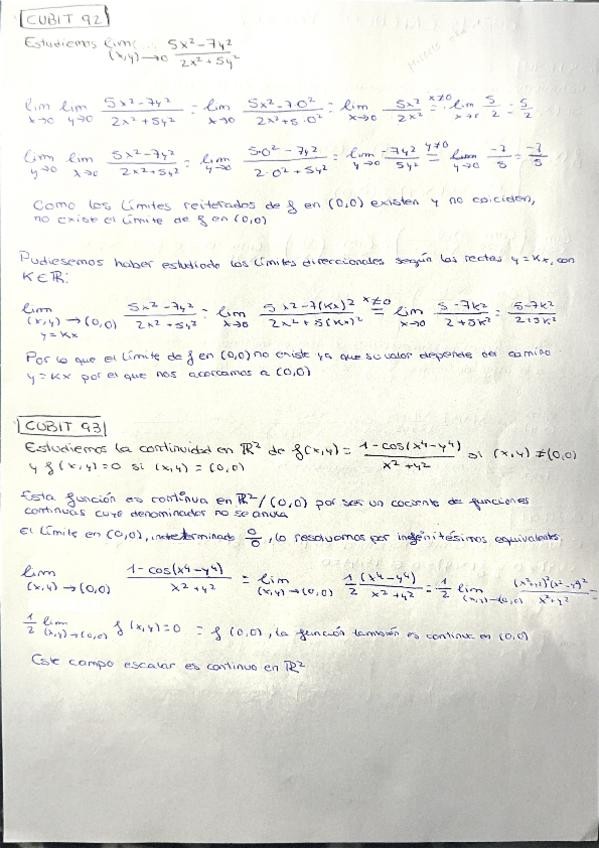 CUBIT 92
Estudiemos lim (x,y)→0 (5x²-7y²)/(2x²+5y²)
lim x→0 lim y→0 (5x²-7y²)/(2x²+5y²) = lim x→0 (5x²-7·0²)/(2x²+5·0²) = lim x→0 5x²/2x² x≠0 = lim x→0 5/2 = 5/2
lim y→0 lim x→0 (5x²-7y²)/(2x²+5y²) = lim y→0 (5·0²-7y²)/(2·0²+5y²) = lim y→0 -7y²/5y² y≠0 = lim y→0 -7/5 = -7/5
Como los límites reiterados de f en (0,0) existen y no coiciden,
no existe el límite de f en (0,0)
Pudiesemos haber estudiado los límites direccionales según las rectas y=Kx, con
K∈ℝ:
lim (x,y)→(0,0) y=Kx (5x²-7y²)/(2x²+5y²) = lim x→0 (5x²-7(Kx)²)/(2x²+5(Kx)²) x≠0 = lim x→0 (5-7K²)/(2+5K²) = (5-7K²)/(2+5K²)
Por lo que el límite de f en (0,0) no existe ya que su valor depende del camino
y=Kx por el que nos acercamos a (0,0)
CUBIT 93
Estudiemos la continuidad en ℝ² de f(x,y) = (1-cos(x⁴-y⁴))/(x²+y²) si (x,y)≠(0,0)
y f(x,y)=0 si (x,y)=(0,0)
Esta función es continua en ℝ²/(0,0) por ser un cociente de funciones
continuas cuyo denominador no se anula
El límite en (0,0), indeterminado 0/0, lo resolvemos por infinitésimos equivalentes:
lim (x,y)→(0,0) (1-cos(x⁴-y⁴))/(x²+y²) = lim (x,y)→(0,0) 1/2 (x⁴-y⁴)/(x²+y²) = 1/2 lim (x,y)→(0,0) =
1/2 lim (x,y)→(0,0) f(x,y)=0 = f(0,0), la función también es continua en (0,0)
Este campo escalar es continuo en ℝ²